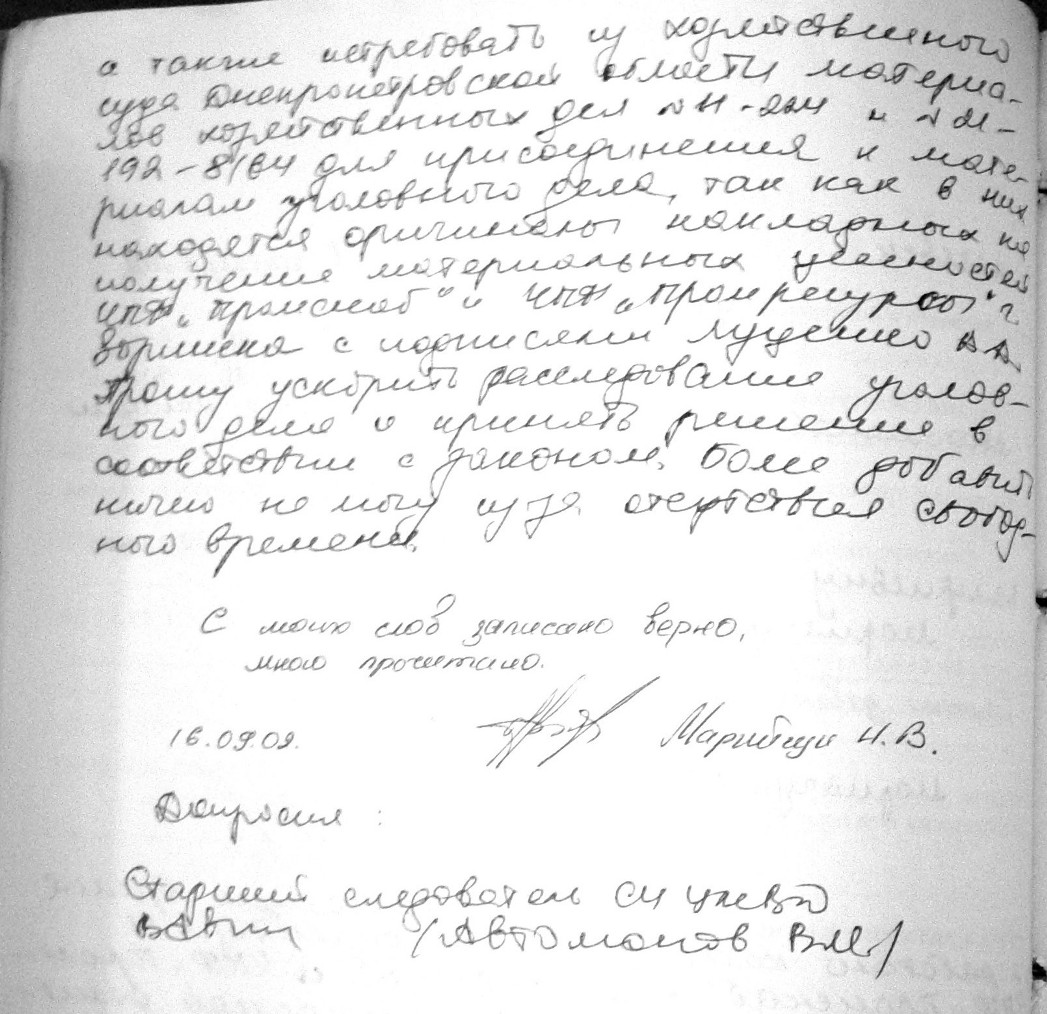 а также истребовать из хозяйственного
суда Днепропетровской области материа-
лов хозяйственных дел и
для присоединения к мате-
риалам уголовного дела, так как в них
находятся оригиналы накладных на
получение материальных ценностей
"Промснаб" и "Промресурсы" г.
с подписями Луценко
Прошу ускорить расследование уголов-
ного дела и принять решение в
соответствии с законом. Более добавить
ничего не могу из-за отсутствия свобод-
ного времени.
С моих слов записано верно,
мною прочитано.
16.09.09.
Н.В.
Допросил:
Старший следователь СЧ
(Автомонов В.М.)